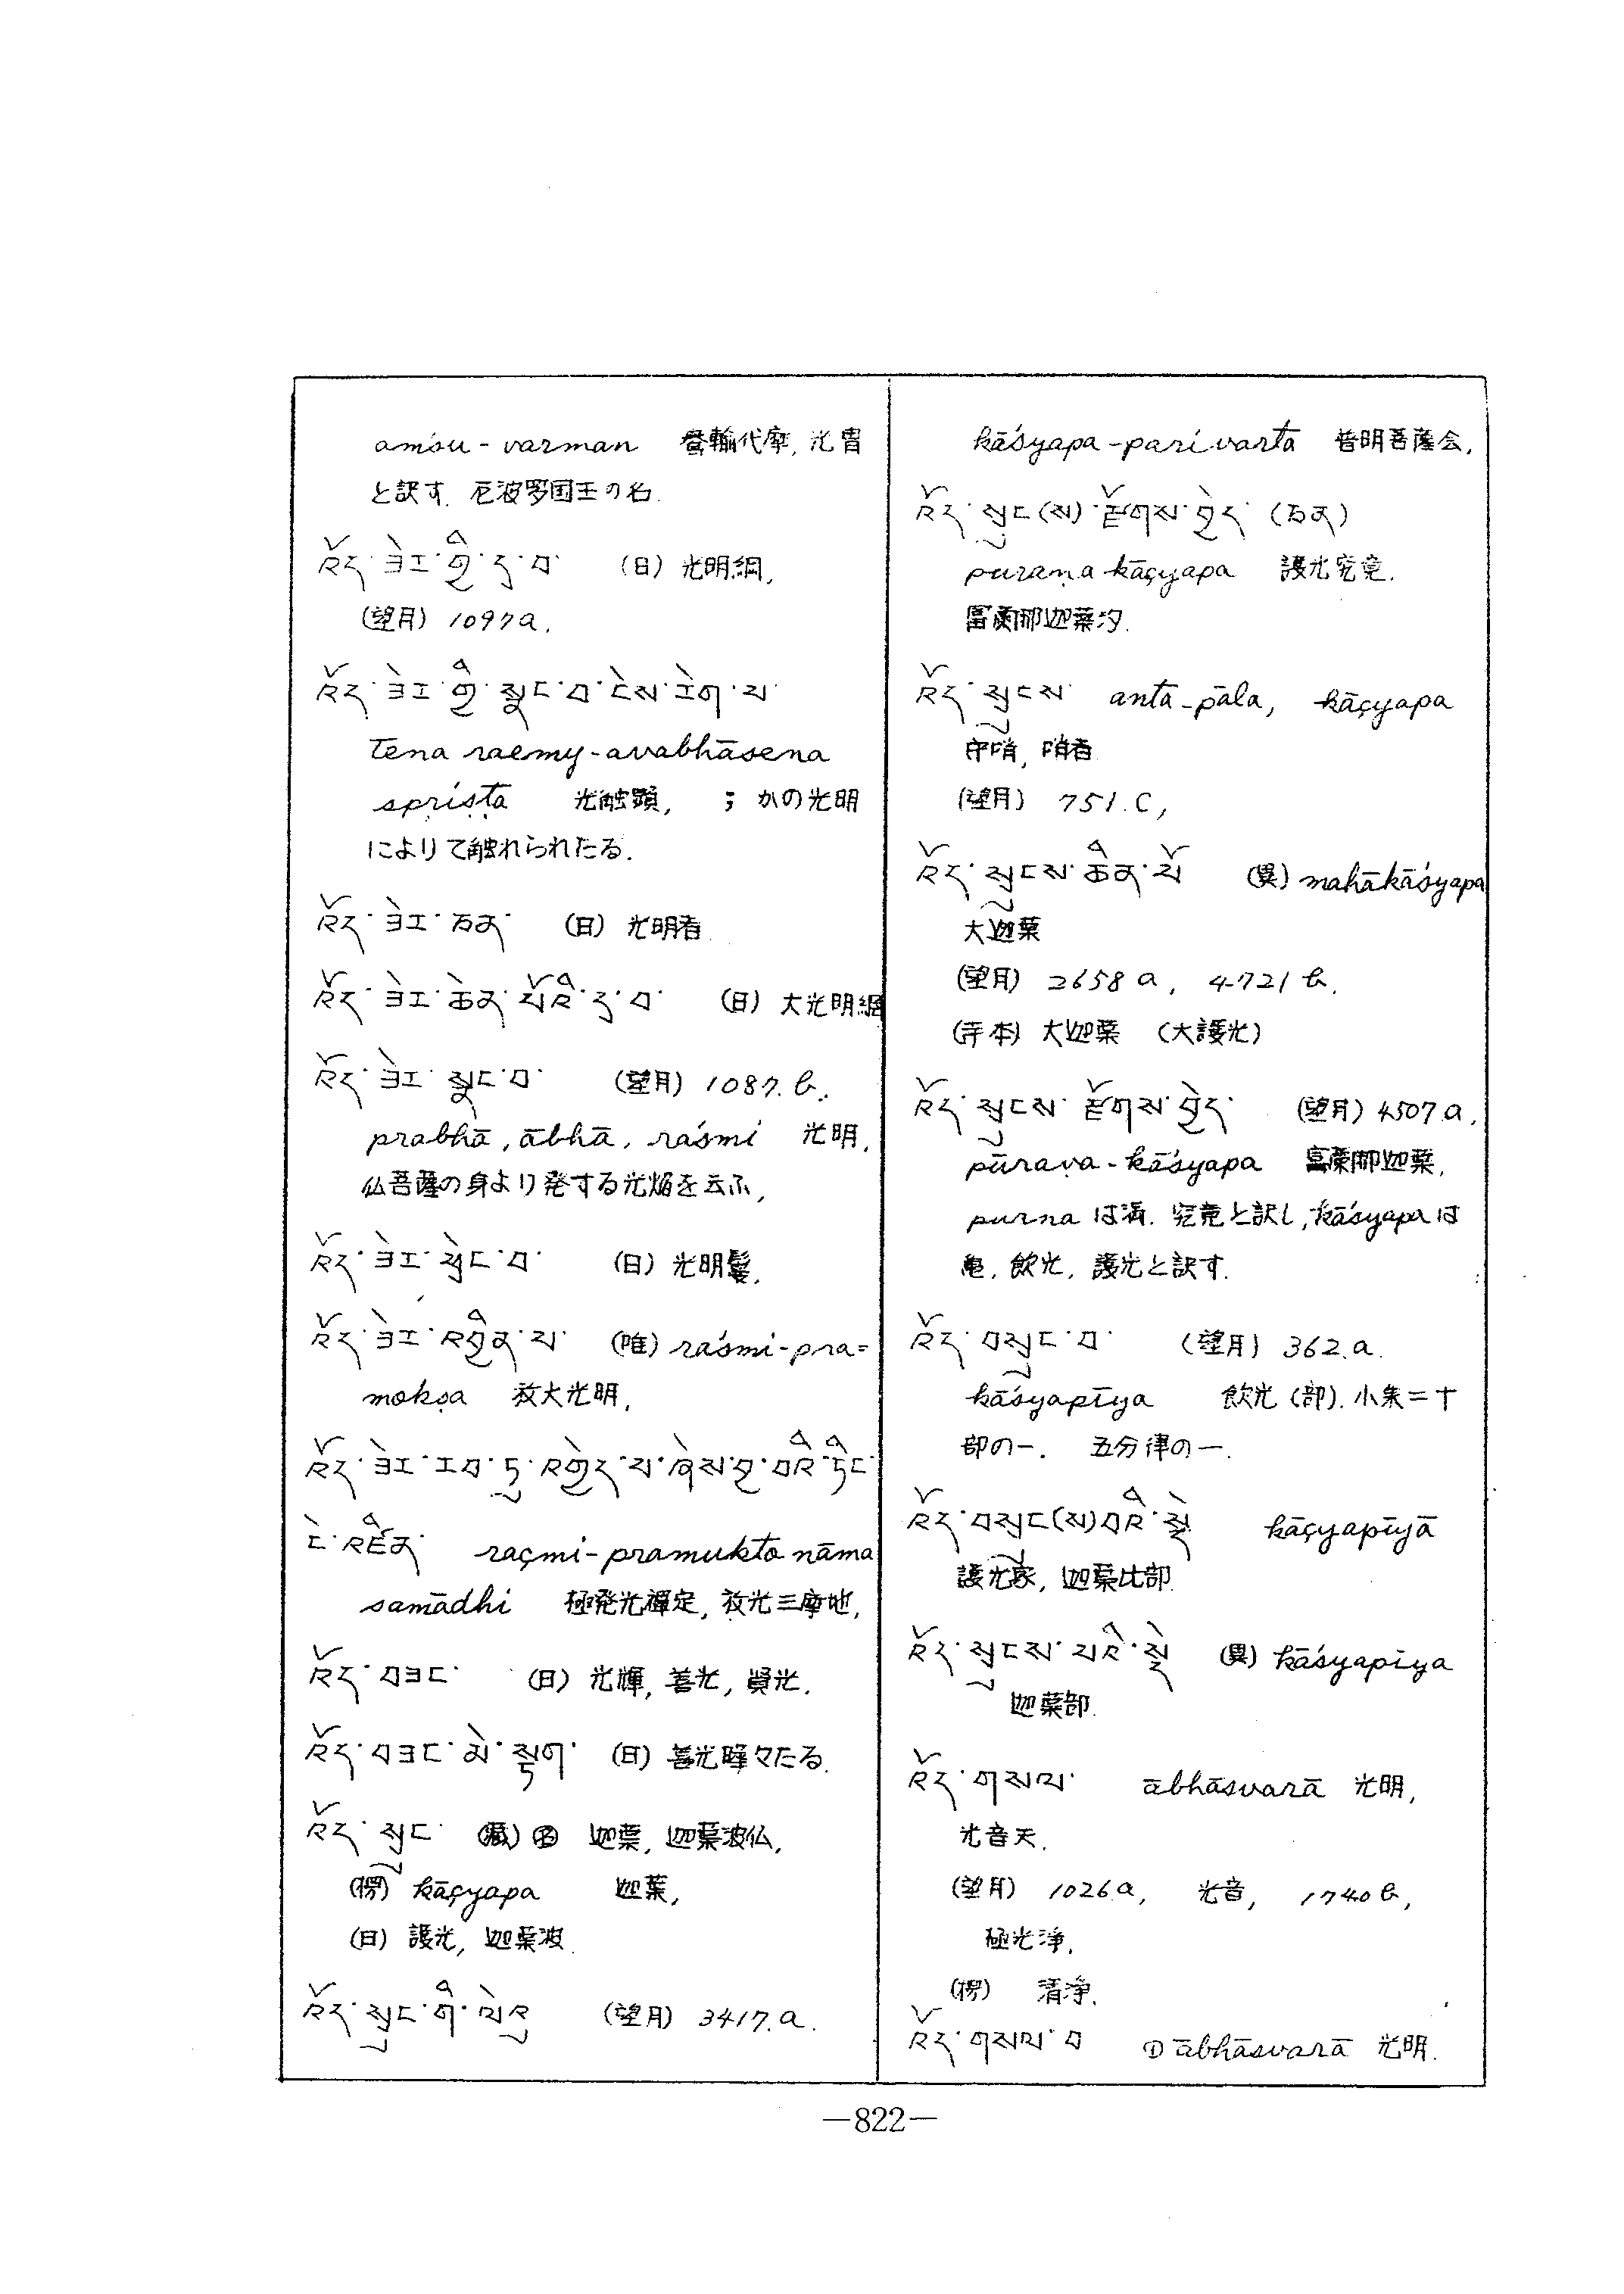 amśu-varman 鴦輸代摩, 光冑
と訳す. 尼波罗国王の名.
འོད་ཟེར་གྱི་དྲ་བ་ (日) 光明綱,
(望月) 1097a.
འོད་ཟེར་གྱི་སྣང་བ་དེས་རེག་པ་
tena raemy-avabhāsena
spṛiṣṭa 光触顕, ; かの光明
によりて触れられたる.
འོད་ཟེར་ཅན་ (日) 光明者
འོད་ཟེར་ཆེན་པོའི་དྲ་བ་ (日) 大光明綱
འོད་ཟེར་སྣང་བ་ (望月) 1087.b.
prabhā, ābhā, raśmi 光明,
仏菩薩の身より発する光焔を云ふ,
འོད་ཟེར་ཕྲེང་བ་ (日) 光明鬘,
འོད་ཟེར་འབྱིན་པ་ (唯) raśmi-pra=
mokṣa 放大光明,
འོད་ཟེར་རབ་ཏུ་འགྱེད་པ་ཞེས་བྱ་བའི་ཏིང་
ངེ་འཛིན་ raçmi-pramukto nāma
samādhi 極発光禪定, 放光三摩地,
འོད་བཟང་ (日) 光輝, 善光, 賢光.
འོད་བཟང་མེ་སྟག་ (日) 善光曄々たる.
འོད་སྲུང་ (蔵) 迦葉, 迦葉波仏,
(楞) kāçyapa 迦葉,
(日) 護光, 迦葉波
འོད་སྲུང་གི་ལེའུ (望月) 3417.a.
kāśyapa-parivarta 普明菩薩会,
འོད་སྲུང(ས)་རྫོགས་བྱེད་ (ཅན)
puraṇa kāçyapa 護光究竟.
富蘭那迦葉汐.
འོད་སྲུངས་ anta-pāla, kāçyapa
守哨, 哨者
(望月) 751.c,
འོད་སྲུངས་ཆེན་པོ (異) mahākāśyapa
大迦葉
(望月) 2658a, 4721b.
(寺本) 大迦葉 (大護光)
འོད་སྲུངས་རྫོགས་བྱེད་ (望月) 4507.a,
pūrava-kāśyapa 富蘭那迦葉,
purna は満. 究竟と訳し, kāśyapa は
亀, 飲光, 護光と訳す.
འོད་བསྲུང་བ་ (望月) 362.a.
kāśyapīya 飲光 (部). 小乗二十
部の一. 五分律の一.
འོད་བསྲུང(ས)བའི་སྡེ kāçyapīyā
護光家, 迦葉比部
འོད་སྲུངས་པའི་སྡེ (異) kāśyapiya
迦葉部.
འོད་གསལ་ ābhāsvarā 光明,
光音天.
(望月) 1026a, 光音, 1740b,
極光浄,
(楞) 清浄.
འོད་གསལ་བ ①ābhāsvarā 光明.
—822—